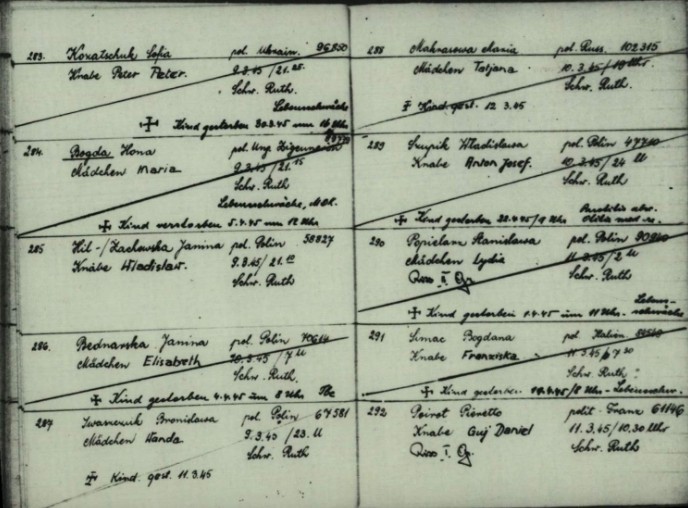 283. Kozatschuk Sofia pol. Ukrain. 96850
Knabe Peter Peter. 9.3.45/21.25
Schw. Ruth.
Lebensschwäche
Kind gestorben 30.3.45 um 16 Uhr
284. Bogda Ilona pol. Ung. Zigeunerin
Mädchen Maria 9.3.45/21.15
Schw. Ruth
Lebensschwäche,
Kind verstorben 5.4.45 um 12 Uhr
285 Hil-/Zachowska Janina pol. Polin 58827
Knabe Wladislaw. 9.3.45/21.
Schw. Ruth
286. Bednarska Janina pol. Polin
Mädchen Elisabeth 10.3.45/7 U
Schw. Ruth.
Kind gestorben 4.4.45 um 8 Uhr Tbc
287 Iwanczuk Bronislawa pol. Polin 67581
Mädchen Wanda 9.3.45/23. U
Schw. Ruth
Kind. gest. 11.3.45
288 Makrasowa Maria pol. Russ. 102315
Mädchen Tatjana 10.3.45/19 Uhr
Schw. Ruth.
Kind. gest. 12.3.45
289 Wladislawa pol. Polin
Knabe Anton Josef. 10.3.45/24 U
Schw. Ruth
Otitis med.
Kind gestorben
290 Popielarz Stanislawa pol. Polin
Mädchen Lydia 11.3.45/2 U
Riss II. Gr. Schw. Ruth
Lebensschwäche
Kind gestorben 1.4.45 um 11 Uhr-
291 Simac Bogdana pol. Italien
Knabe Franziska 11.3.45/7.30
Schw. Ruth
Kind gestorben Lebensschw.
292 Poirot Pierette polit. Franz 61146
Knabe Guy Daniel 11.3.45/10.30 Uhr
Riss I. Gr. Schw. Ruth